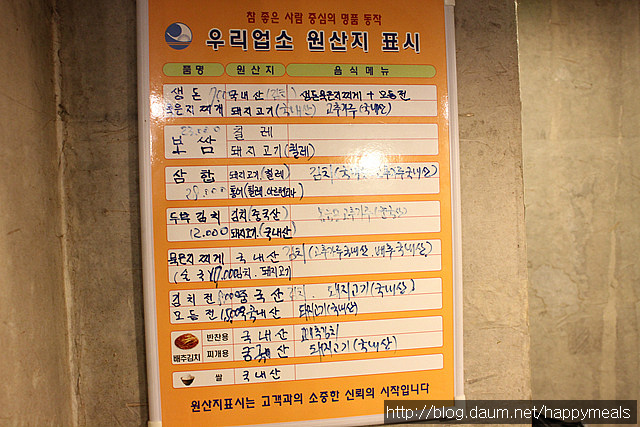 참 좋은 사람 중심의 명품 동작
우리업소 원산지 표시
품명 원산지 음식메뉴
생돈 국내산(김치) 생돈묵은지찌개 + 모듬전
묵은지찌개 돼지고기(국내산) 고추가루(국내산)
칠레
보쌈 돼지고기(칠레)
삼합 돼지고기(칠레) 김치(국 고추가루국내산)
홍어(칠레, 아르헨티나)
두부김치 김치(중국산) 고추가루
12.000 돼지고기.(국내산)
묵은지찌개 국내산 김치(고추가루국내산, 배추국내산)
김치. 돼지고기
김치전 중국산 김치. 돼지고기(국내산)
모듬전 국내산 돼지고기(국내산)
배추김치 반찬용 국내산 배추김치
찌개용 돼지고기(국내산)
쌀 국내산
원산지표시는 고객과의 소중한 신뢰의 시작입니다
http://blog.daum.net/happymeals